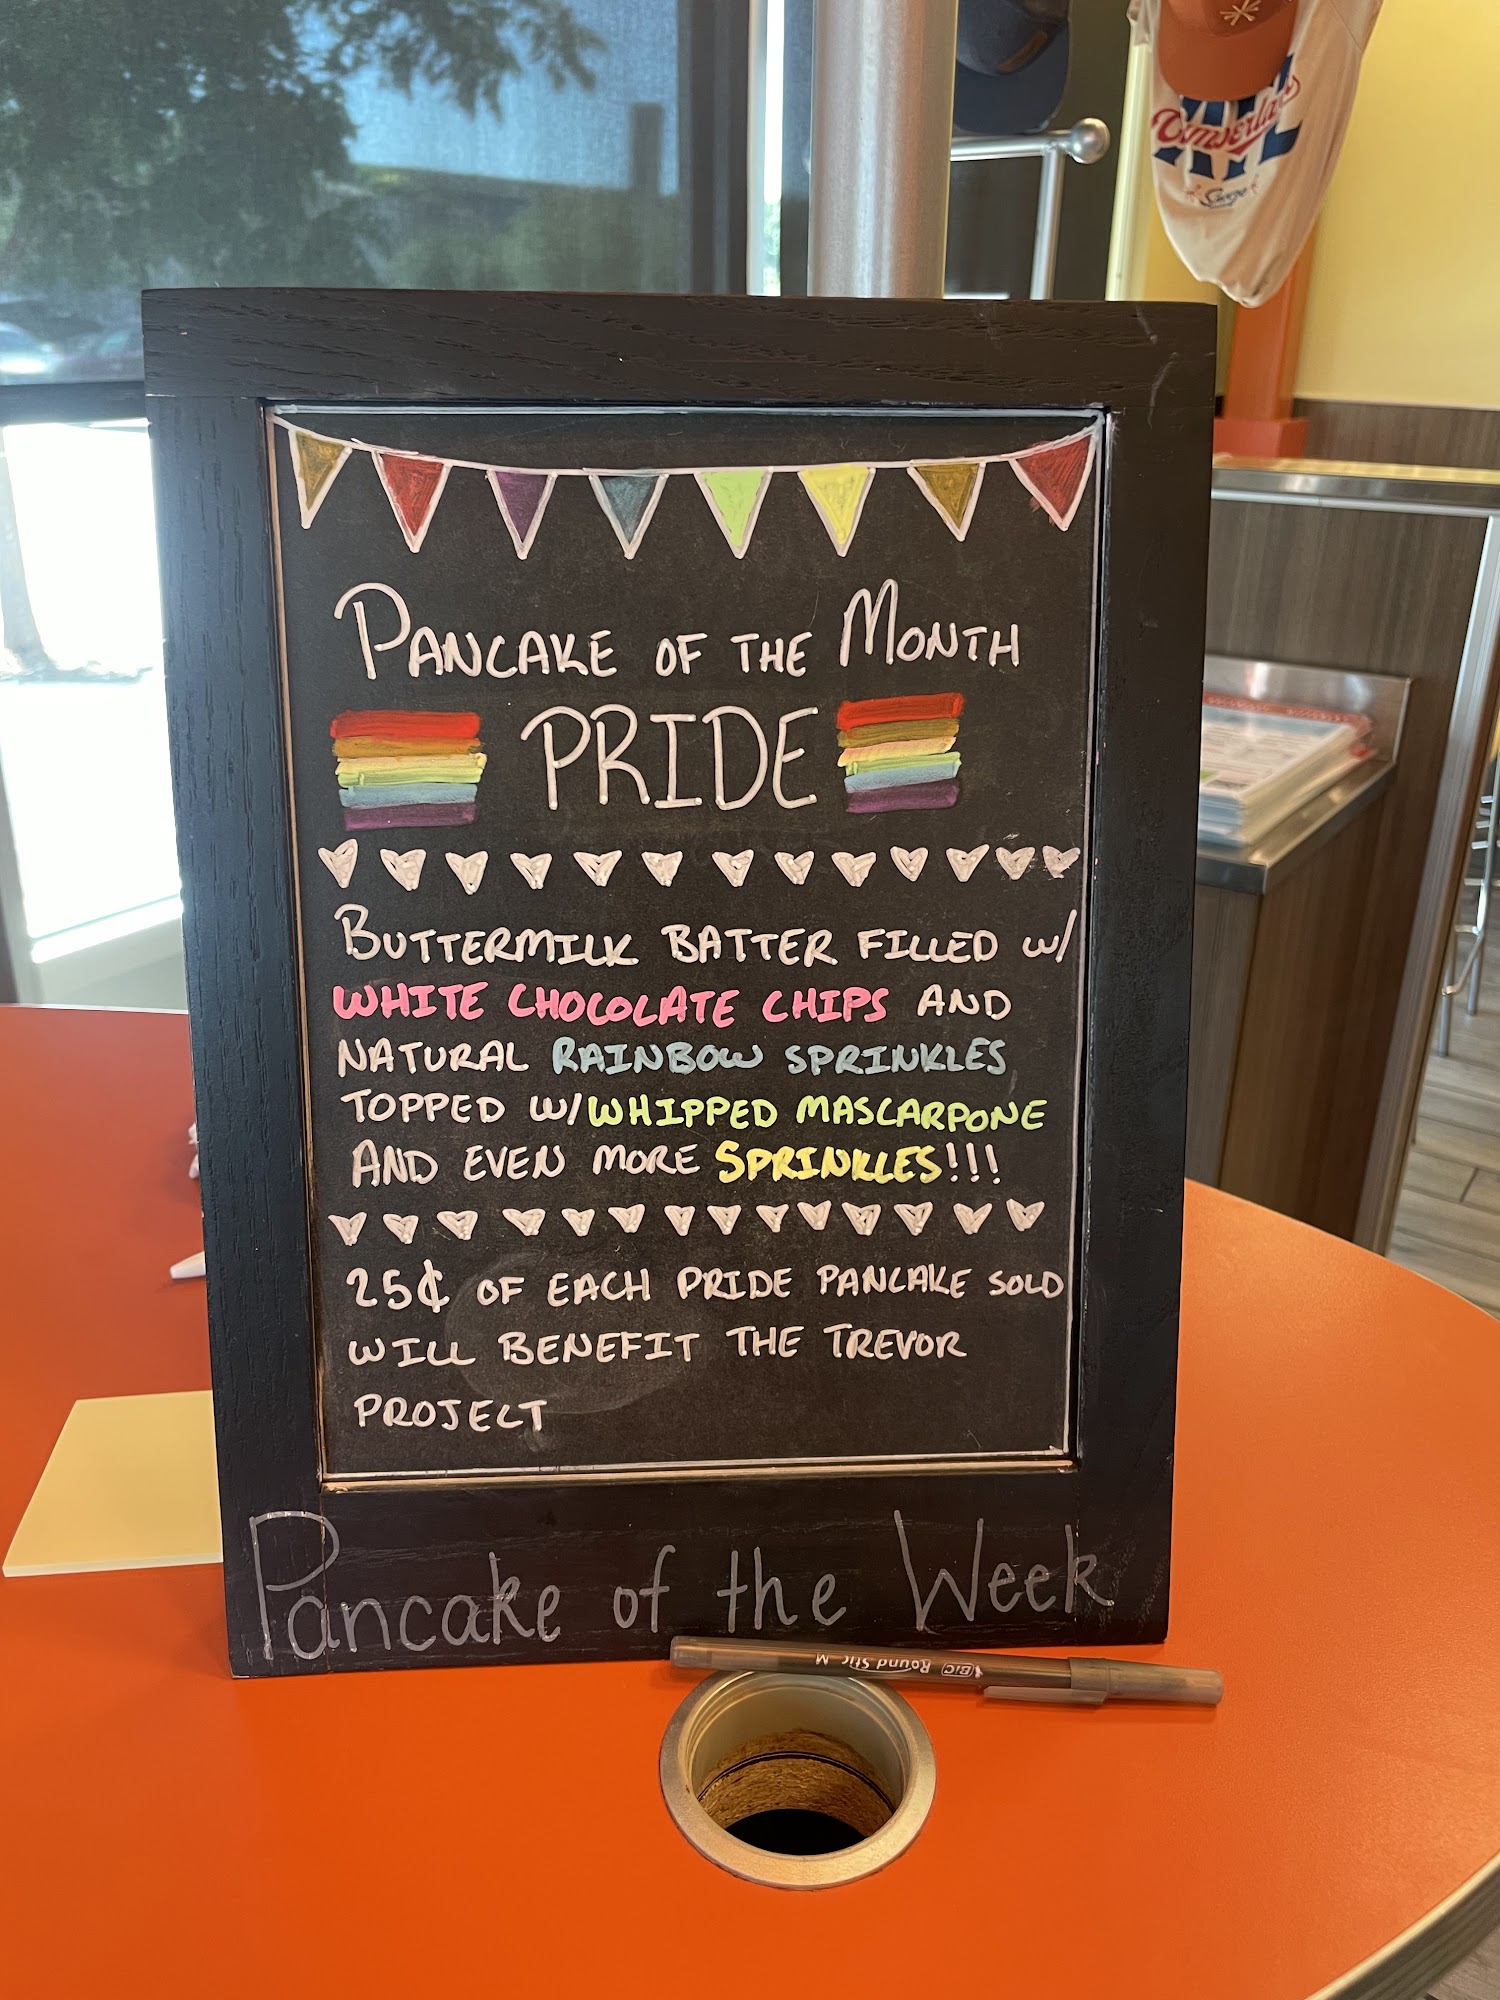 PANCAKE OF THE MONTH
PRIDE
BUTTERMILK BATTER FILLED W/
WHITE CHOCOLATE CHIPS AND
NATURAL RAINBOW SPRINKLES
TOPPED W/ WHIPPED MASCARPONE
AND EVEN MORE SPRINKLES!!!
25¢ OF EACH PRIDE PANCAKE SOLD
WILL BENEFIT THE TREVOR
PROJECT
Pancake of the Week
BIC Round Stic M